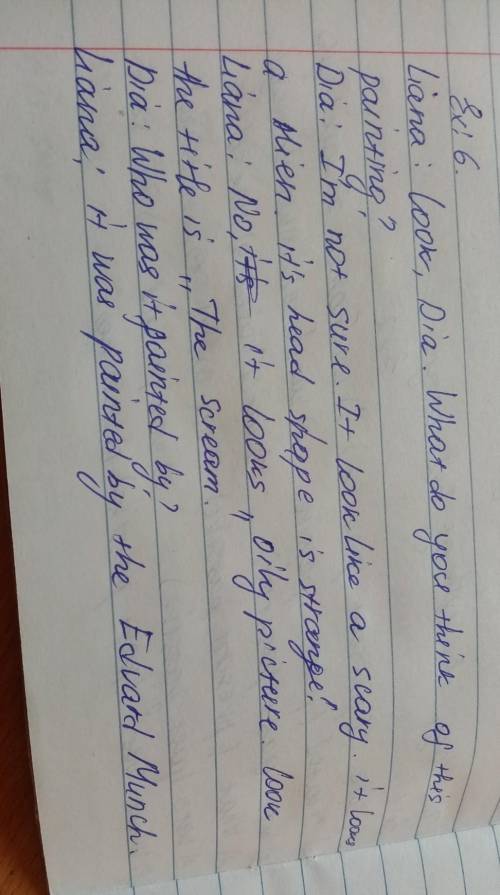 Ex: 6.
Liana: Look, Dia. What do you think of this
painting?
Dia: I'm not sure. It look like a scary. it looks
a Alien. it's head shape is strange!
Liana: No, it looks „ oily picture. look
the title is „ The scream.
Dia: Who was it painted by?
Liana: it was painted by the Edvard Munch.